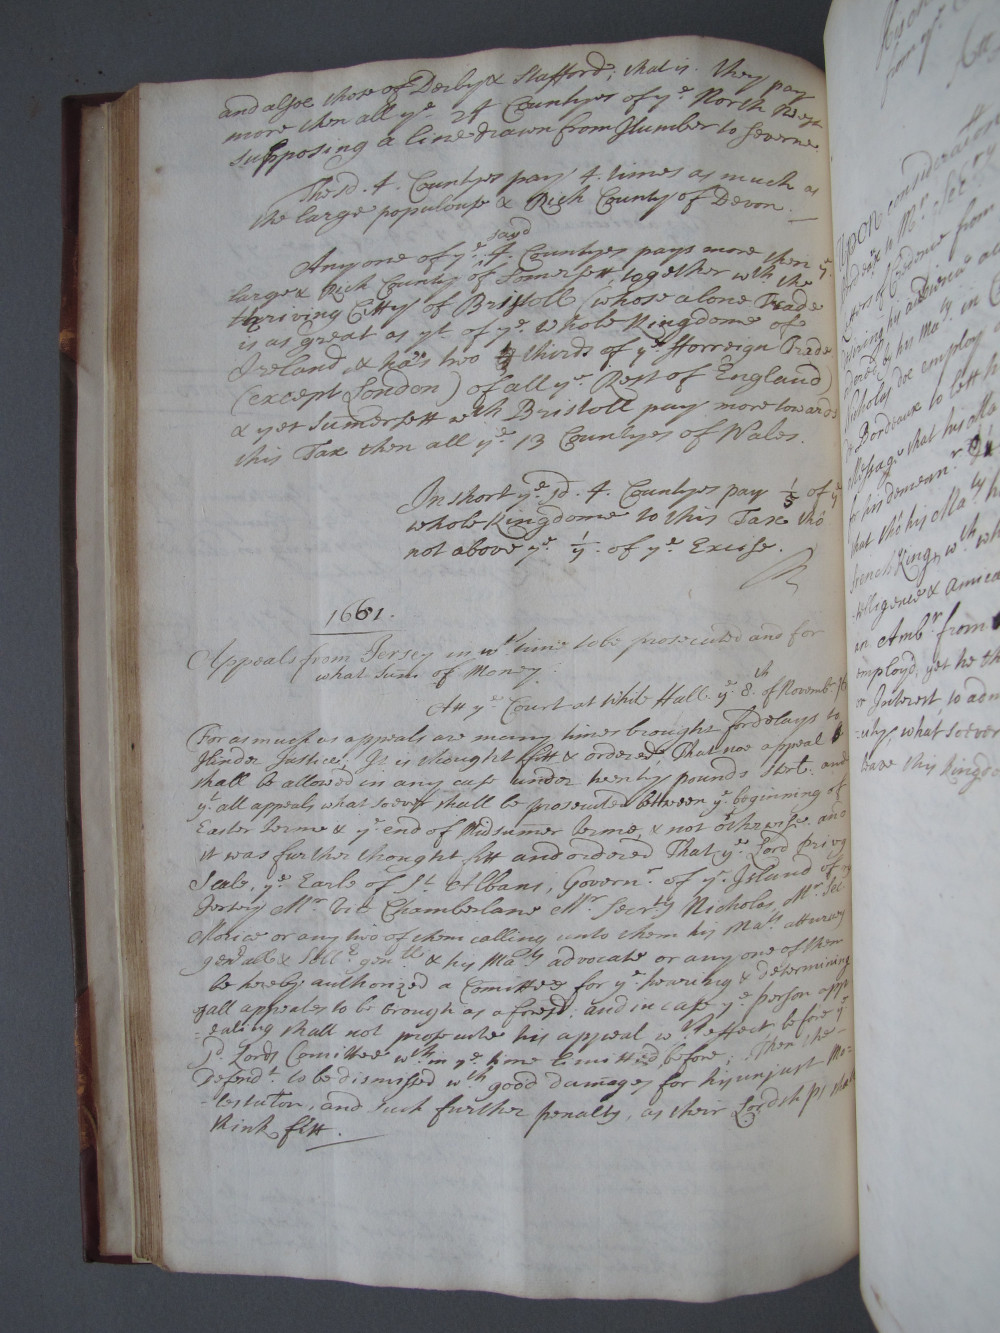 and alsoe those of Derby & Stafford; that is. they pay
more then all ye. 24 Countyes of ye. North West
supposing a line drawn from Humber to Severne.
The sd. 4. Countyes pay 4. times as much as
the large populouse & Rich County of Devon.
Any one of ye. sayd 4. Countyes pays more then ye.
large & Rich County of Somersett together wth. the
thriving Citty of Bristoll (whose alone Trade
is as great as yt. of ye. whole Kingdome of
Ireland, & has two thirds of ye. Forreign Trade
(except London) of all ye. Rest of England)
& yet Sumersett wth Bristoll pay more towards
this Tax then all ye. 13 Countyes of Wales.
In short ye. sd. 4. Countyes pay 1/5 of ye
whole Kingdome to this Tax tho'
not above ye. of ye. Excise.
1661.
Appeals from Jersey in wt. time to be prosecuted and for
what Sum of Money.
Att ye. Court at White Hall. ye. 8th. of Novemb.
For as much as appeals are many times brought for delays to
Hinder Justice; It is thought fitt & ordered, That noe appeal
shall be allowed in any case under twenty pounds sterl. and
yt. all appeals what soever shall be prosecuted between ye. beginning of
Easter terme & ye. end of Midsummer terme, & not otherwise. and
it was further thought fitt and ordered That ye. Lord privy
Seale, ye. Earle of St. Albans, Governr. of ye. Island of
Jersey Mr. Vic Chamberlane Mr. Secrty Nicholas, Mr. Sec.
Morice or any two of them calling unto them his Matys. atturney
generall & Sollr. genll. & his Matys advocate or any one of them
be hereby authorized a Comittee for ye. hearing & determining
of all appeales to be brough as aforesd. and in case ye. person app
-ealing shall not prosecute his appeal wth effect before ye.
sd. Lords Comittee wthin ye. time limitted before; Then the
Defendt. to be dismissed wth. good damages for his unjust Mo=
-lestation, and such further penalty, as their Lordshps shall
think fitt.
Upon consideration
to Mr. Secry
of Credence from
desiring his audience
his Maty. in C
Nicholas doe employ
Bordeaux to lett h
Message that his Ma
for his demeanr.
that tho' his Maty h
french King, wth. wh
-telligence & amica
an Ambr. from
employd; yet he th
Interest, to adm
what soever
leave this kingdo